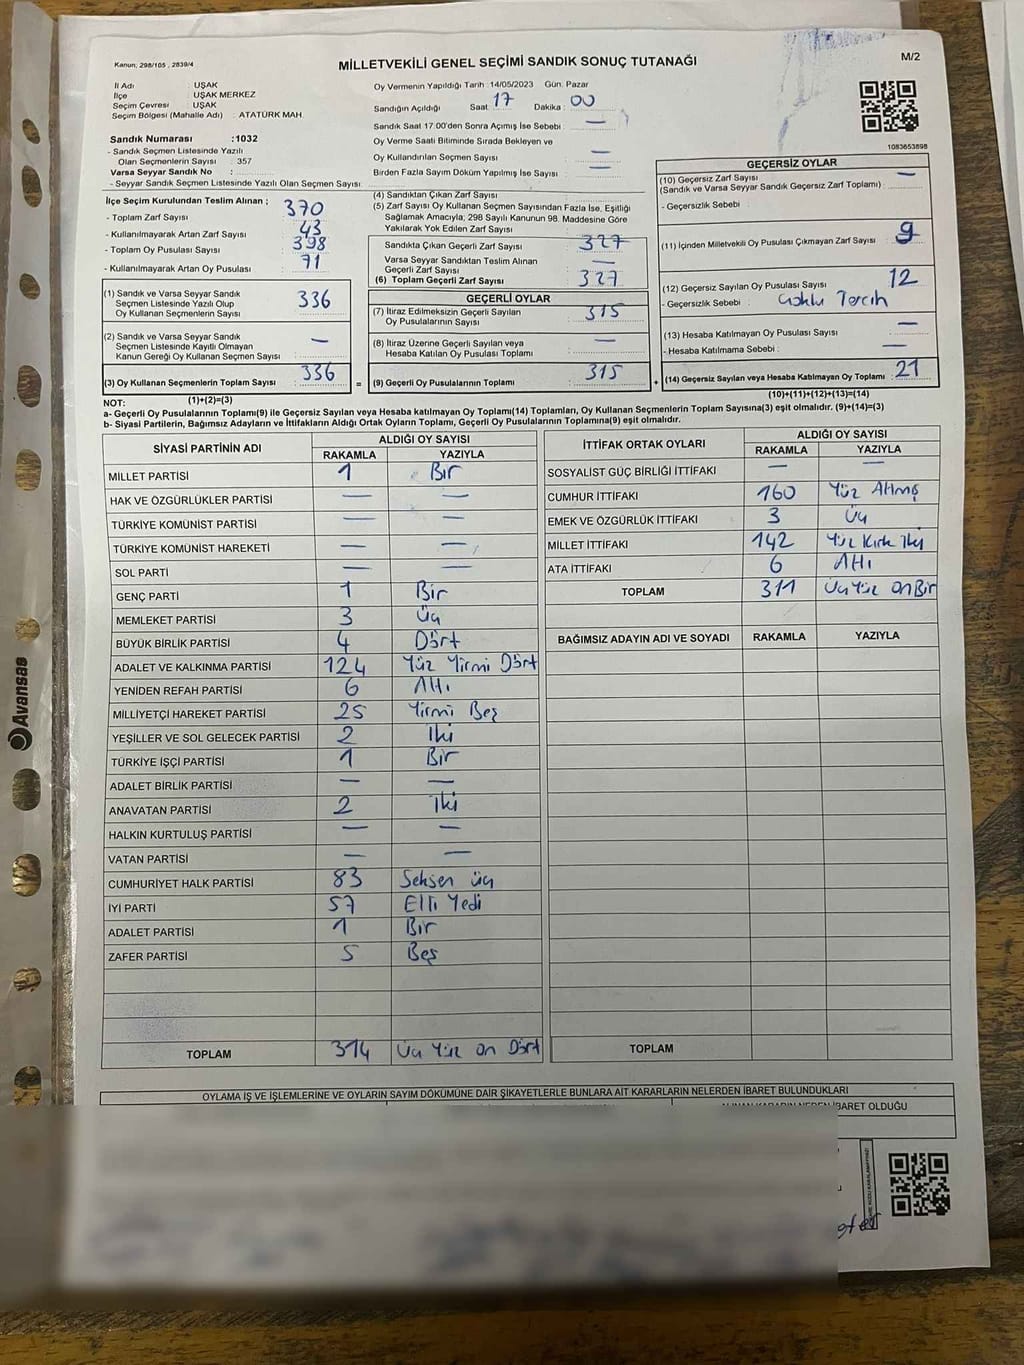 Kanun; 298/105 , 2839/4
MİLLETVEKİLİ GENEL SEÇİMİ SANDIK SONUÇ TUTANAĞI
M/2
İl Adı : UŞAK
İlçe : UŞAK MERKEZ
Seçim Çevresi : UŞAK
Seçim Bölgesi (Mahalle Adı) : ATATÜRK MAH.
Sandık Numarası :1032
- Sandık Seçmen Listesinde Yazılı
Olan Seçmenlerin Sayısı : 357
Varsa Seyyar Sandık No :
- Seyyar Sandık Seçmen Listesinde Yazılı Olan Seçmen Sayısı
Oy Vermenin Yapıldığı Tarih :14/05/2023 Gün: Pazar
Sandığın Açıldığı Saat : 17 Dakika : 00
Sandık Saat 17.00'den Sonra Açımış İse Sebebi : —
Oy Verme Saati Bitiminde Sırada Bekleyen ve
Oy Kullandırılan Seçmen Sayısı : —
Birden Fazla Sayım Döküm Yapılmış İse Sayısı : —
1083653898
İlçe Seçim Kurulundan Teslim Alınan ;
- Toplam Zarf Sayısı : 370
- Kullanılmayarak Artan Zarf Sayısı : 43
- Toplam Oy Pusulası Sayısı : 398
- Kullanılmayarak Artan Oy Pusulası : 71
(1) Sandık ve Varsa Seyyar Sandık
Seçmen Listesinde Yazılı Olup
Oy Kullanan Seçmenlerin Sayısı : 336
(2) Sandık ve Varsa Seyyar Sandık
Seçmen Listesinde Kayıtlı Olmayan
Kanun Gereği Oy Kullanan Seçmen Sayısı : —
(3) Oy Kullanan Seçmenlerin Toplam Sayısı : 336
(4) Sandıktan Çıkan Zarf Sayısı :
(5) Zarf Sayısı Oy Kullanan Seçmen Sayısından Fazla İse, Eşitliği
Sağlamak Amacıyla; 298 Sayılı Kanunun 98. Maddesine Göre
Yakılarak Yok Edilen Zarf Sayısı :
Sandıkta Çıkan Geçerli Zarf Sayısı : 327
Varsa Seyyar Sandıktan Teslim Alınan
Geçerli Zarf Sayısı : —
(6) Toplam Geçerli Zarf Sayısı : 327
GEÇERLİ OYLAR
(7) İtiraz Edilmeksizin Geçerli Sayılan
Oy Pusulalarının Sayısı : 315
(8) İtiraz Üzerine Geçerli Sayılan veya
Hesaba Katılan Oy Pusulası Toplamı : —
= (9) Geçerli Oy Pusulalarının Toplamı : 315
GEÇERSİZ OYLAR
(10) Geçersiz Zarf Sayısı
(Sandık ve Varsa Seyyar Sandık Geçersiz Zarf Toplamı) : —
- Geçersizlik Sebebi :
(11) İçinden Milletvekili Oy Pusulası Çıkmayan Zarf Sayısı : 9
(12) Geçersiz Sayılan Oy Pusulası Sayısı : 12
- Geçersizlik Sebebi : Çoklu Tercih
(13) Hesaba Katılmayan Oy Pusulası Sayısı : —
- Hesaba Katılmama Sebebi : —
+ (14) Geçersiz Sayılan veya Hesaba Katılmayan Oy Toplamı : 21
NOT: (1)+(2)=(3) (10)+(11)+(12)+(13)=(14)
a- Geçerli Oy Pusulalarının Toplamı(9) ile Geçersiz Sayılan veya Hesaba katılmayan Oy Toplamı(14) Toplamları, Oy Kullanan Seçmenlerin Toplam Sayısına(3) eşit olmalıdır. (9)+(14)=(3)
b- Siyasi Partilerin, Bağımsız Adayların ve İttifakların Aldığı Ortak Oyların Toplamı, Geçerli Oy Pusulalarının Toplamına(9) eşit olmalıdır.
SİYASİ PARTİNİN ADI ALDIĞI OY SAYISI
RAKAMLA YAZIYLA
MİLLET PARTİSİ 1 Bir
HAK VE ÖZGÜRLÜKLER PARTİSİ — —
TÜRKİYE KOMÜNİST PARTİSİ — —
TÜRKİYE KOMÜNİST HAREKETİ — —
SOL PARTİ — —
GENÇ PARTİ 1 Bir
MEMLEKET PARTİSİ 3 Üç
BÜYÜK BİRLİK PARTİSİ 4 Dört
ADALET VE KALKINMA PARTİSİ 124 Yüz Yirmi Dört
YENİDEN REFAH PARTİSİ 6 Altı
MİLLİYETÇİ HAREKET PARTİSİ 25 Yirmi Beş
YEŞİLLER VE SOL GELECEK PARTİSİ 2 İki
TÜRKİYE İŞÇİ PARTİSİ 1 Bir
ADALET BİRLİK PARTİSİ — —
ANAVATAN PARTİSİ 2 İki
HALKIN KURTULUŞ PARTİSİ — —
VATAN PARTİSİ — —
CUMHURİYET HALK PARTİSİ 83 Seksen üç
İYİ PARTİ 57 Elli Yedi
ADALET PARTİSİ 1 Bir
ZAFER PARTİSİ 5 Beş
TOPLAM 314 Üç Yüz on Dört
İTTİFAK ORTAK OYLARI ALDIĞI OY SAYISI
RAKAMLA YAZIYLA
SOSYALİST GÜÇ BİRLİĞİ İTTİFAKI — —
CUMHUR İTTİFAKI 160 Yüz Altmış
EMEK VE ÖZGÜRLÜK İTTİFAKI 3 Üç
MİLLET İTTİFAKI 142 Yüz Kırk İki
ATA İTTİFAKI 6 Altı
TOPLAM 311 Üç Yüz on Bir
BAĞIMSIZ ADAYIN ADI VE SOYADI RAKAMLA YAZIYLA
TOPLAM
OYLAMA İŞ VE İŞLEMLERİNE VE OYLARIN SAYIM DÖKÜMÜNE DAİR ŞİKAYETLERLE BUNLARA AİT KARARLARIN NELERDEN İBARET BULUNDUKLARI
İBARET OLDUĞU
Avansas